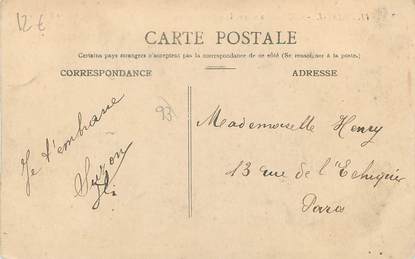 12 €
CARTE POSTALE
Certains pays étrangers n'acceptent pas la correspondance de ce côté (Se renseigner à la poste.)
CORRESPONDANCE
ADRESSE
93
Je t'embrasse
Suzon
Mademoiselle Henry
13 rue de l'Echiquier
Paris